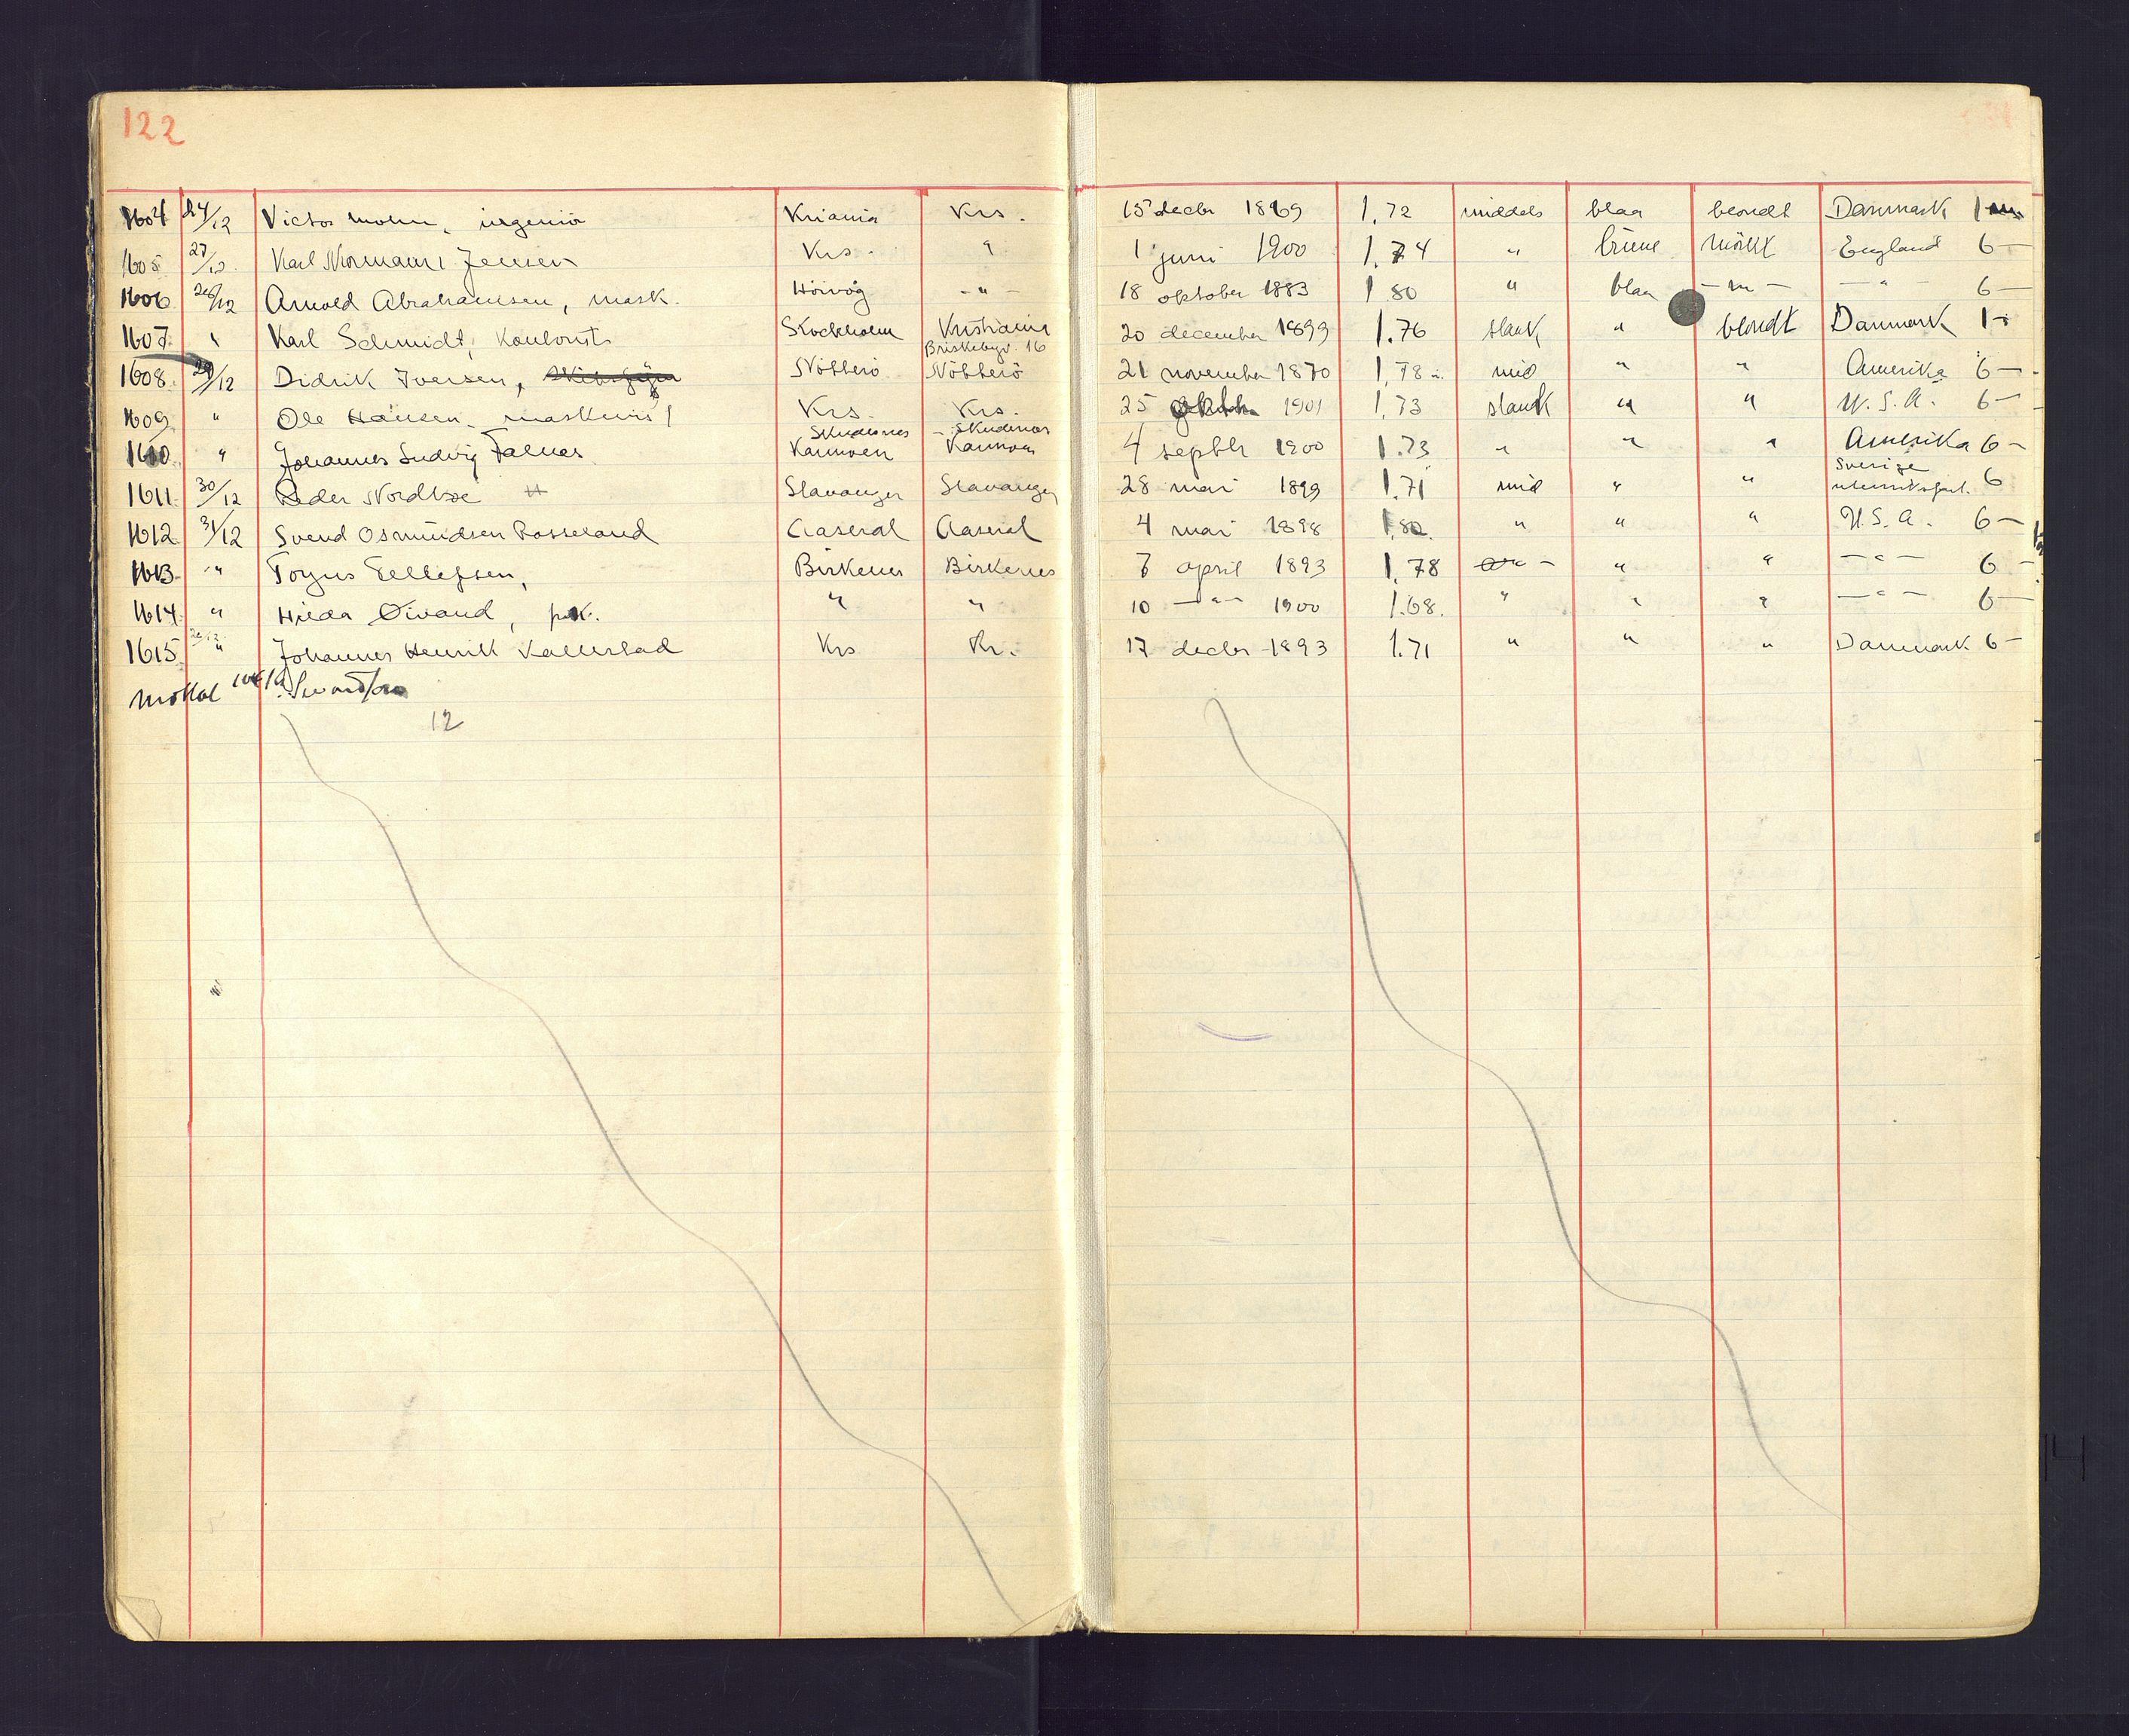 122
1604 24/12 Victor Mohn, ingeniør Kriania Krs. 15 decbr 1869 1,72 middels blaa blondt Danmark 1
1605 27/12 Karl Normann Jensen Krs. " 1 juni 1900 1.74 " brune mörkt England 6 —
1606 28/12 Arnold Abrahamsen, mask. Höivåg - " - 18 oktober 1883 1 80 " blaa - " - - " - 6 —
1607 " Karl Schmidt, Kontorist Stockholm Kristiania 20 december 1899 1.76 slank " blondt Danmark 1
Briskebyv. 16
1608. 29/12 Didrik Iversen, Nötterö Nötterö 21 november 1870 1,78 mid " " Amerika 6 —
1609 " Ole Hansen, maskinist Krs. Krs. 25 1901 1,73 slank " " U.S.A. 6 —
Skudesnes - Skudenes
1610 " Johannes Ludvig Falnes Karmöen Karmöen 4 septbr 1900 1.73 " " " Amerika 6 —
Sverige
1611. 30/12 Peder Nordboe Stavanger Stavanger 28 mai 1899 1.71 mid " " 6
1612 31/12 Svend Osmundsen Rosseland Aaseral Aaseral 4 mai 1898 1,82. " " " U.S.A. 6 —
1613. " Torjus Tellefsen, Birkenes Birkenes 7 april 1893 1,78 - " - " " - " - 6 —
1614. " Hilda Öivand, " " 10 - " - 1900 1.68. " " " - " - 6 —
1615 " Johannes Henrik Kallestad Krs Kr. 17 decbr 1893 1.71 " " " Danmark 6 —
12